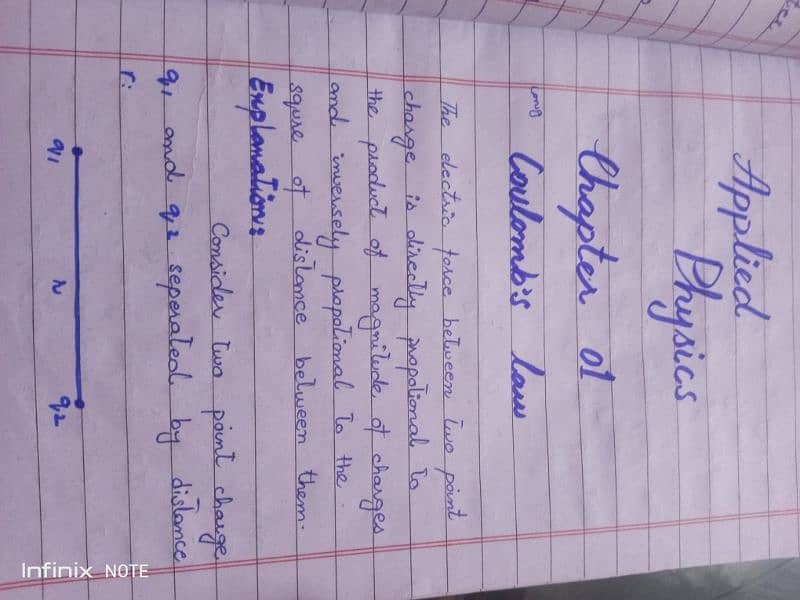 Applied
Physics
Chapter 01
Coulomb's law
The electric force between two point
charge is directly propotional to
the product of magnitude of charges
and inversely propotional to the
squre of distance between them.
Explanation:
Consider two point charge
q1 and q2 seperated by distance
r:
q1 r q2
Infinix NOTE